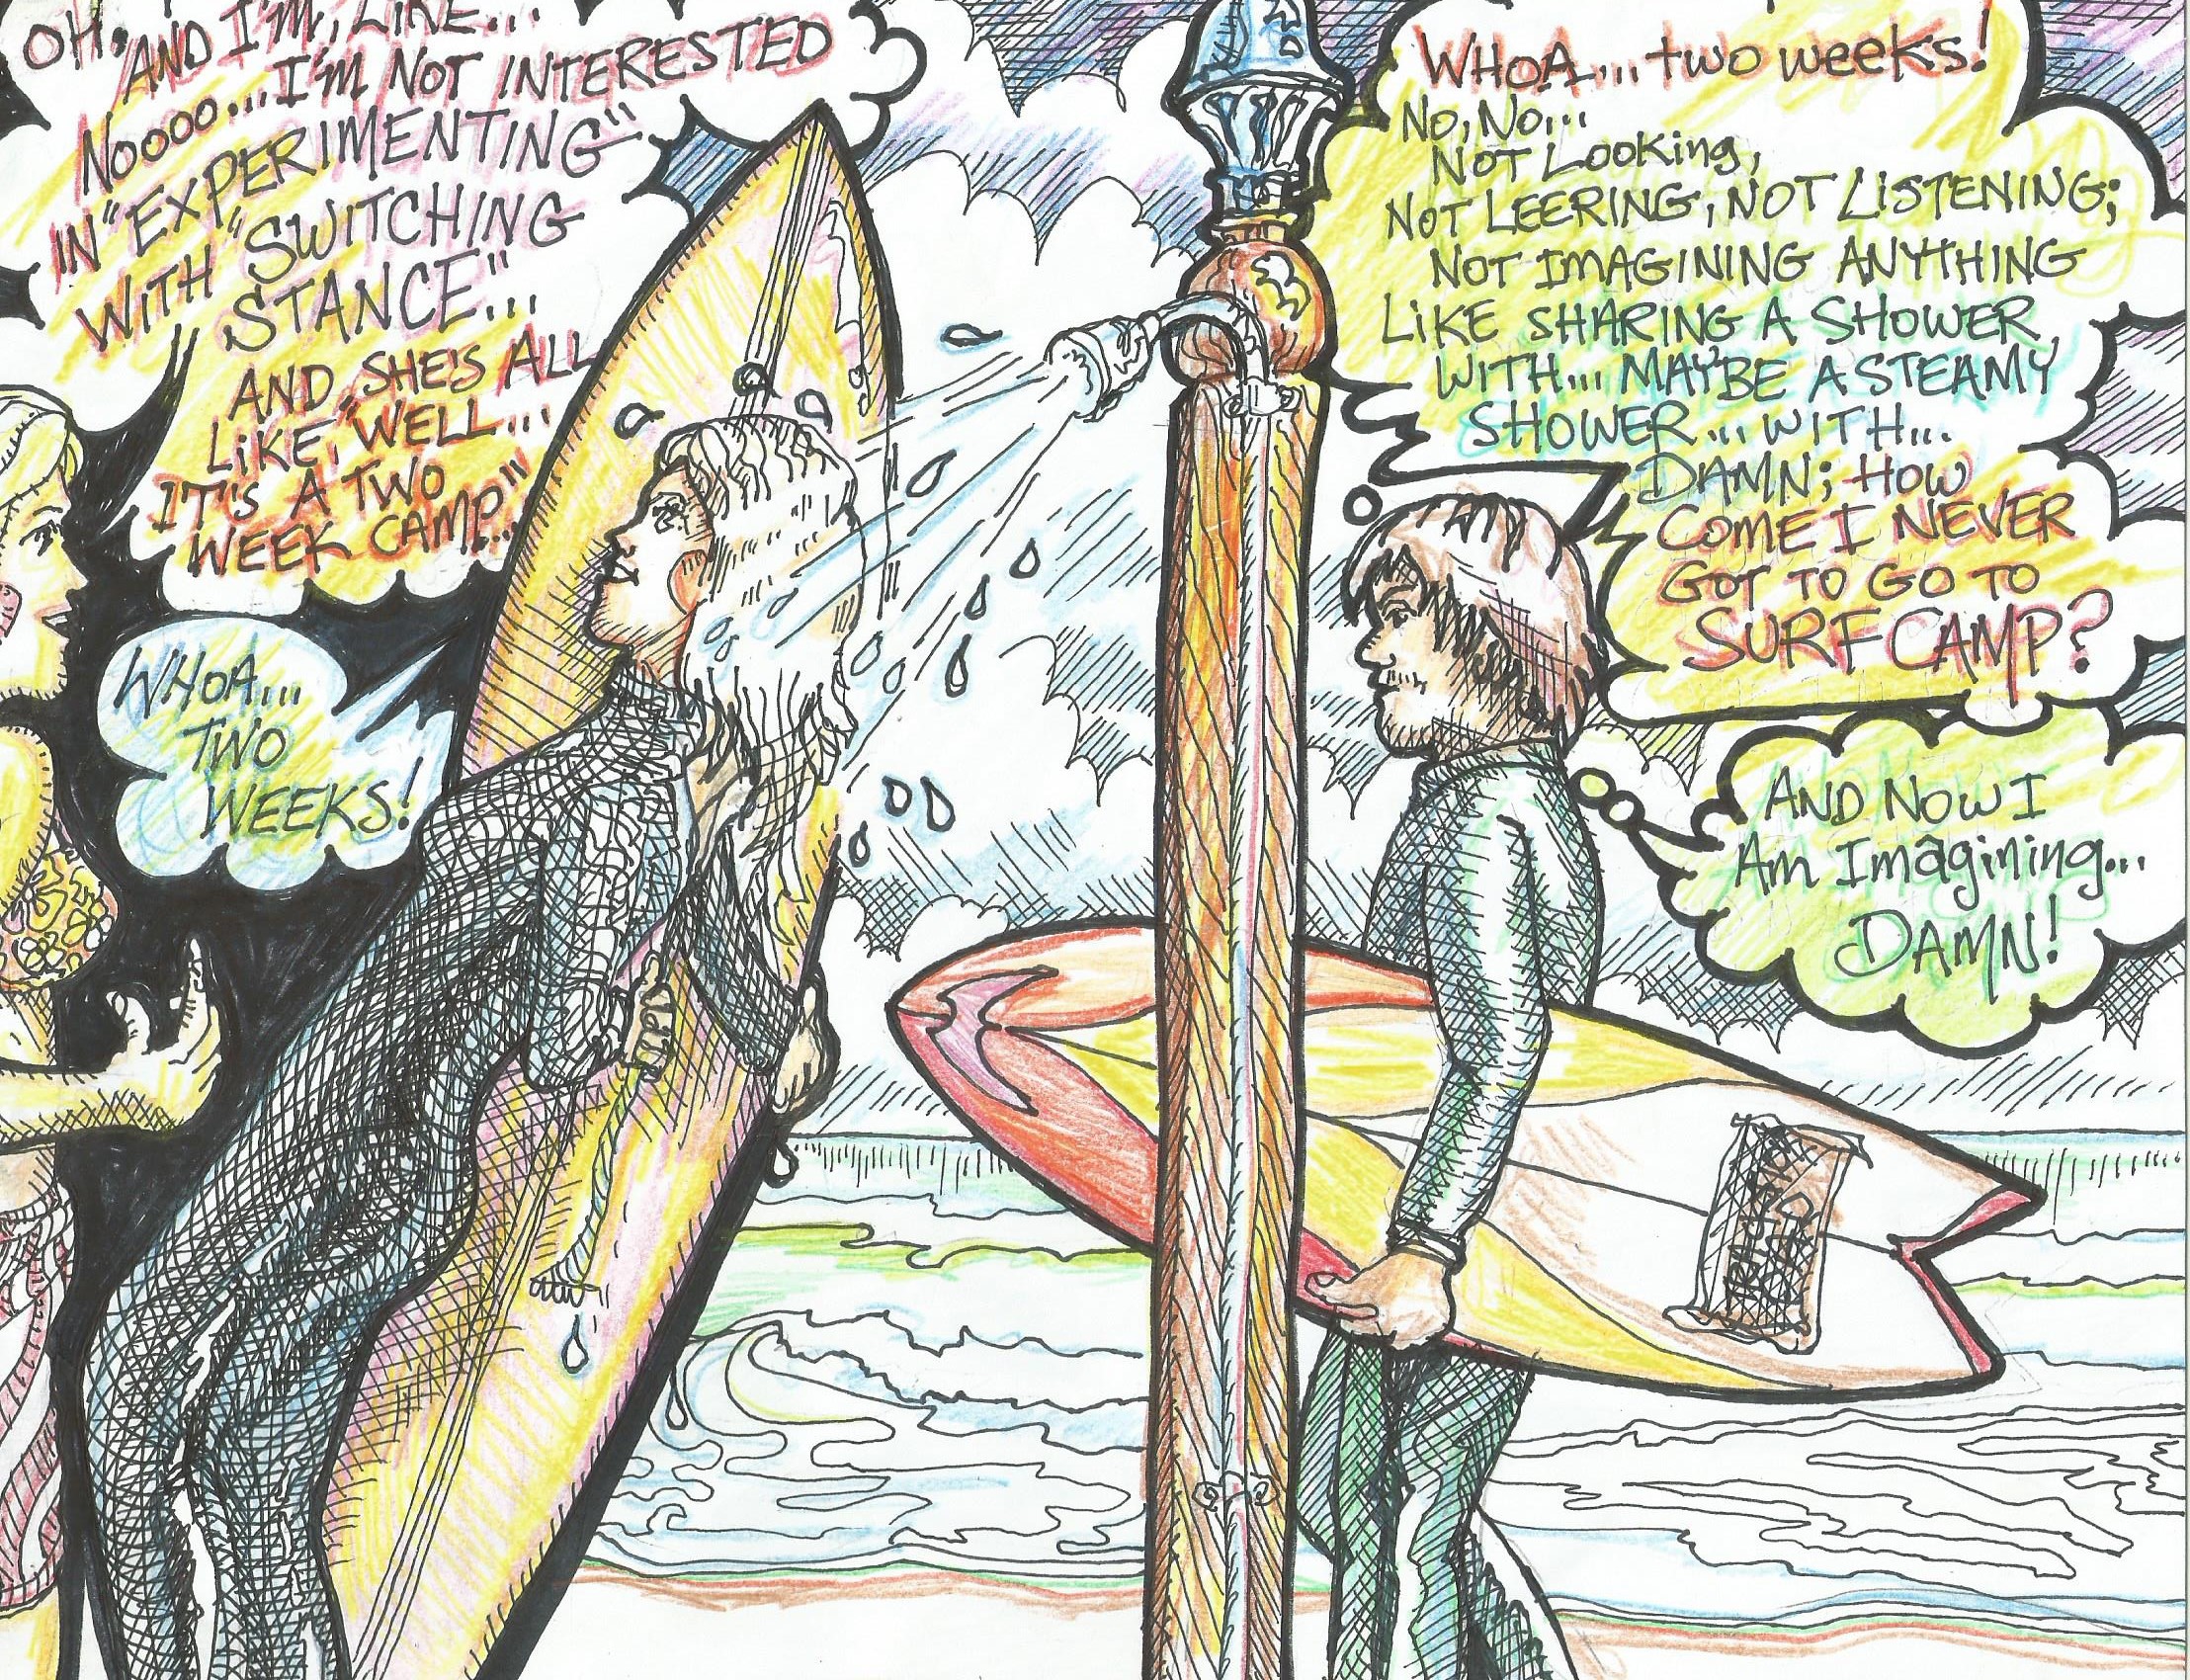 OH, AND I'M, LIKE...
Noooo...I'm NOT INTERESTED
IN "EXPERIMENTING"
WITH "SWITCHING
STANCE"...
AND SHE'S ALL
LIKE, "WELL...
IT'S A TWO
WEEK CAMP..."
WHOA...
TWO
WEEKS!
WHOA... two weeks!
No, No...
NOT Looking,
NOT LEERING, NOT LISTENING;
NOT IMAGINING ANYTHING
LIKE SHARING A SHOWER
WITH... MAYBE A STEAMY
SHOWER... WITH...
DAMN; HOW
COME I NEVER
GOT TO GO TO
SURF CAMP?
AND NOW I
Am Imagining...
DAMN!